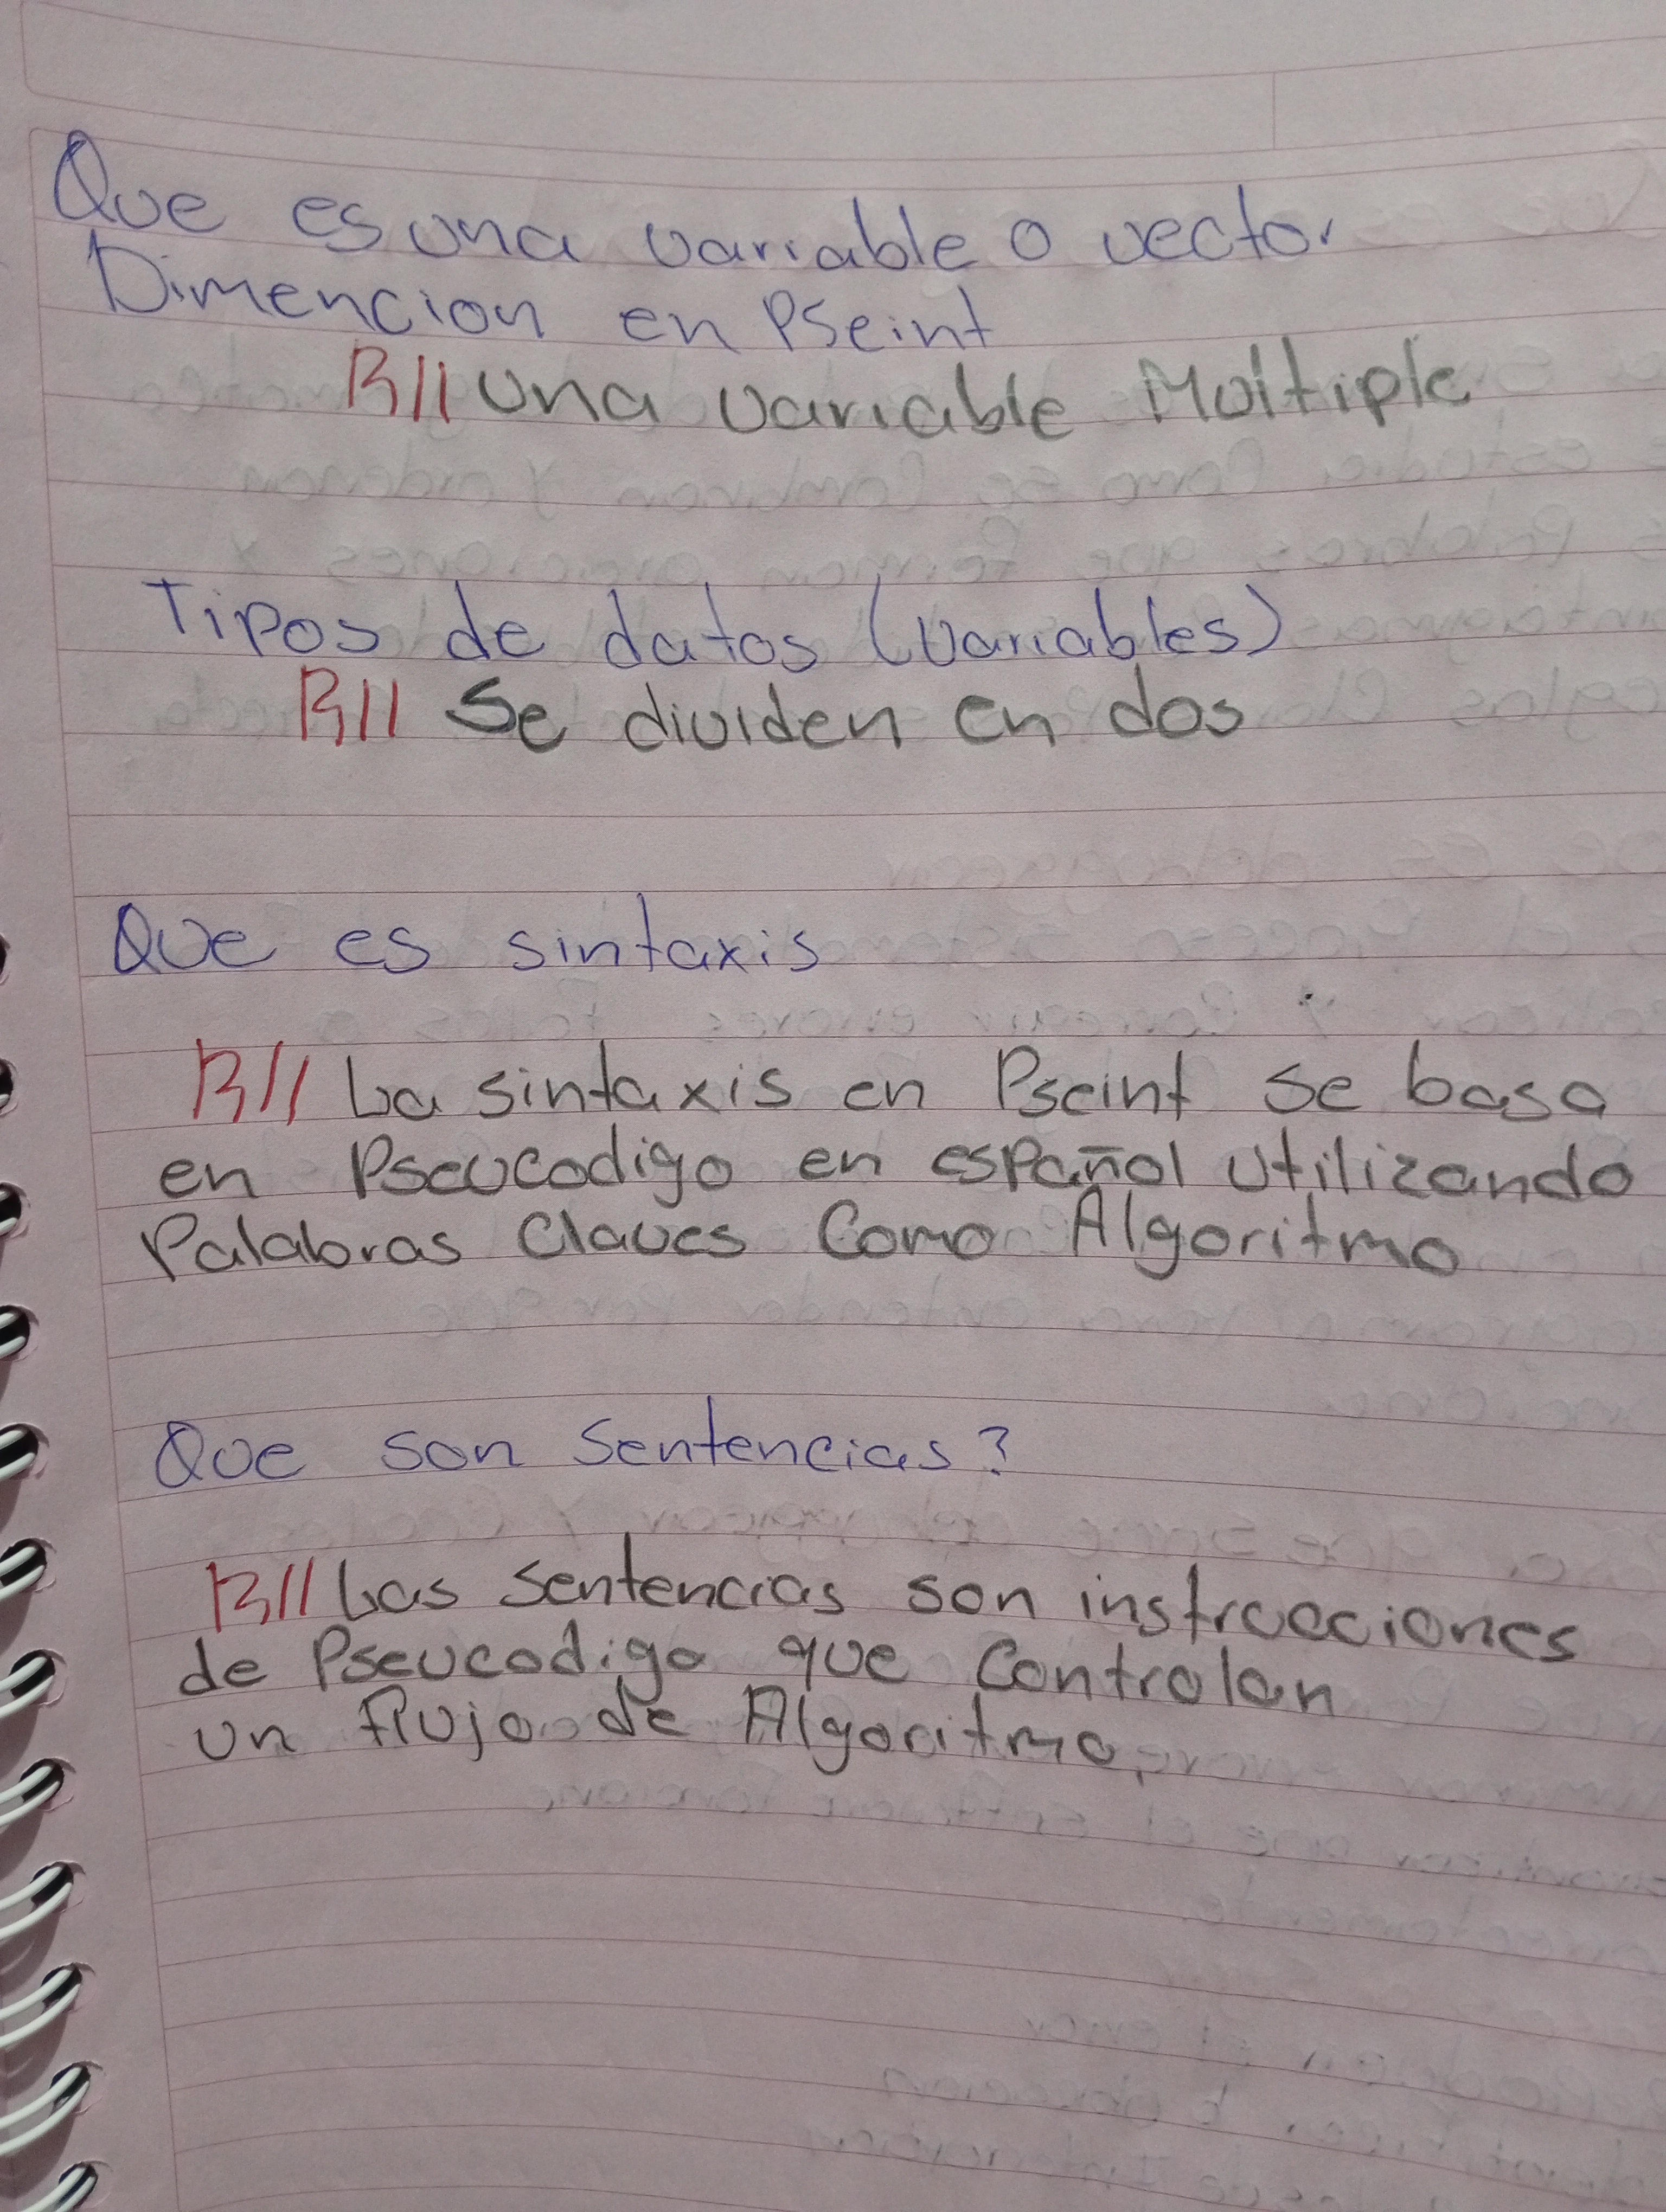 Que es una variable o vector
Dimencion en PSeint
R// una variable Multiple
Tipos de datos (variables)
R// Se dividen en dos
Que es sintaxis
R// La sintaxis en Pseint se basa
en Pseucodigo en español utilizando
Palabras Claves Como Algoritmo
Que son Sentencias?
R// Las sentencias son instrucciones
de Pseucodigo que Controlan
un flujo de Algoritmo.